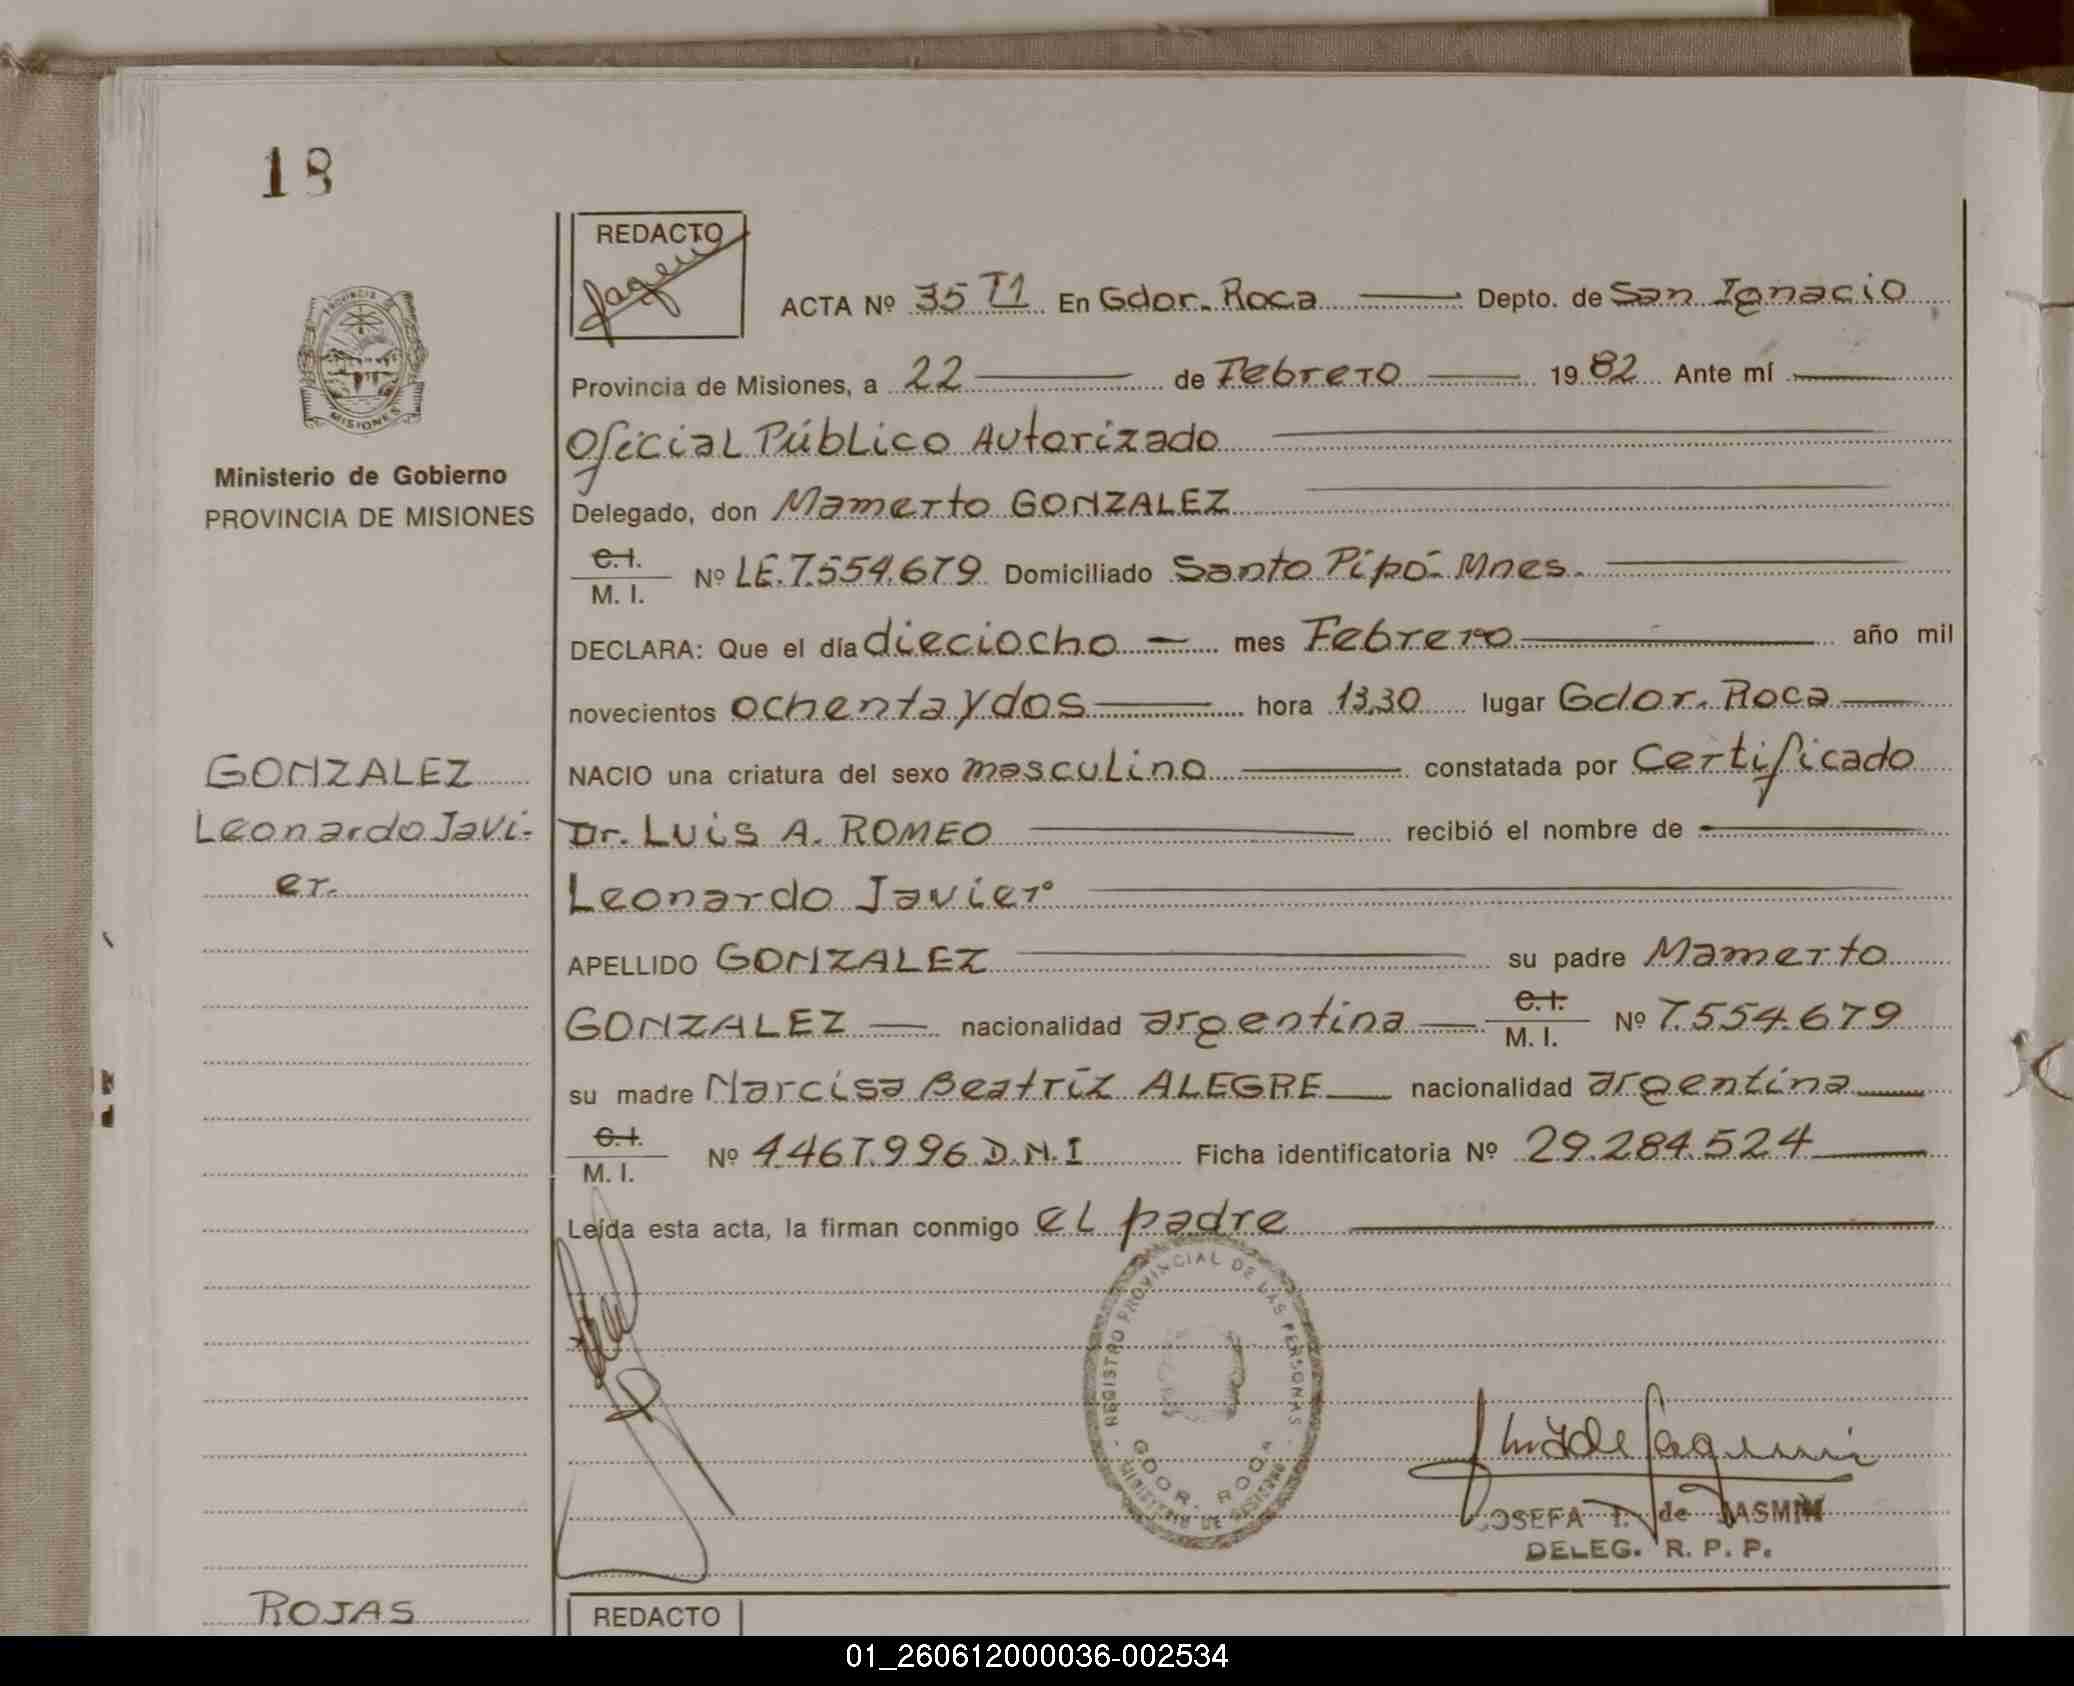 18
REDACTO
ACTA Nº 35 T1 En Gdor. Roca Depto. de San Ignacio
PROVINCIA
MISIONES
Provincia de Misiones, a 22 de Febrero 1982 Ante mí
Oficial Público Autorizado
Ministerio de Gobierno
PROVINCIA DE MISIONES
Delegado, don Mamerto GONZALEZ
C.I.
M. I. Nº LE.7.554.679 Domiciliado Santo Pipó- Mnes.
DECLARA: Que el día dieciocho mes Febrero año mil
novecientos ochenta y dos hora 13,30 lugar Gdor. Roca
GONZALEZ
Leonardo Javi-
er.
NACIO una criatura del sexo masculino constatada por Certificado
Dr. Luis A. ROMEO recibió el nombre de
Leonardo Javier
APELLIDO GONZALEZ su padre Mamerto
GONZALEZ nacionalidad argentina C.I. M. I. Nº 7.554.679
su madre Narcisa Beatriz ALEGRE nacionalidad argentina
C.I.
M. I. Nº 4.467.996 D.N.I Ficha identificatoria Nº 29.284.524
Leída esta acta, la firman conmigo el padre
REGISTRO PROVINCIAL DE LAS PERSONAS
GDOR. ROCA
MINISTERIO DE GOBIERNO
JOSEFA T. de JASMIN
DELEG. R. P. P.
ROJAS
REDACTO
01_260612000036-002534